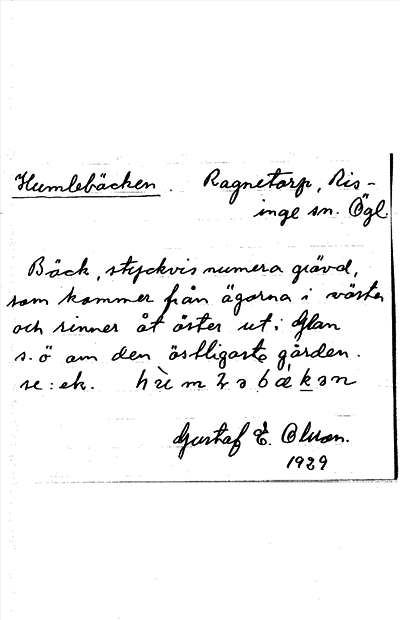 Humlebäcken. Ragnetorp, Ris-
inge sn. Ögl
Bäck, styckvis numera grävd,
som kommer från ägorna i väster
och rinner åt öster ut i Glan
s.ö om den östligaste gården.
se: ek.
Gustaf E. Olsson.
1929